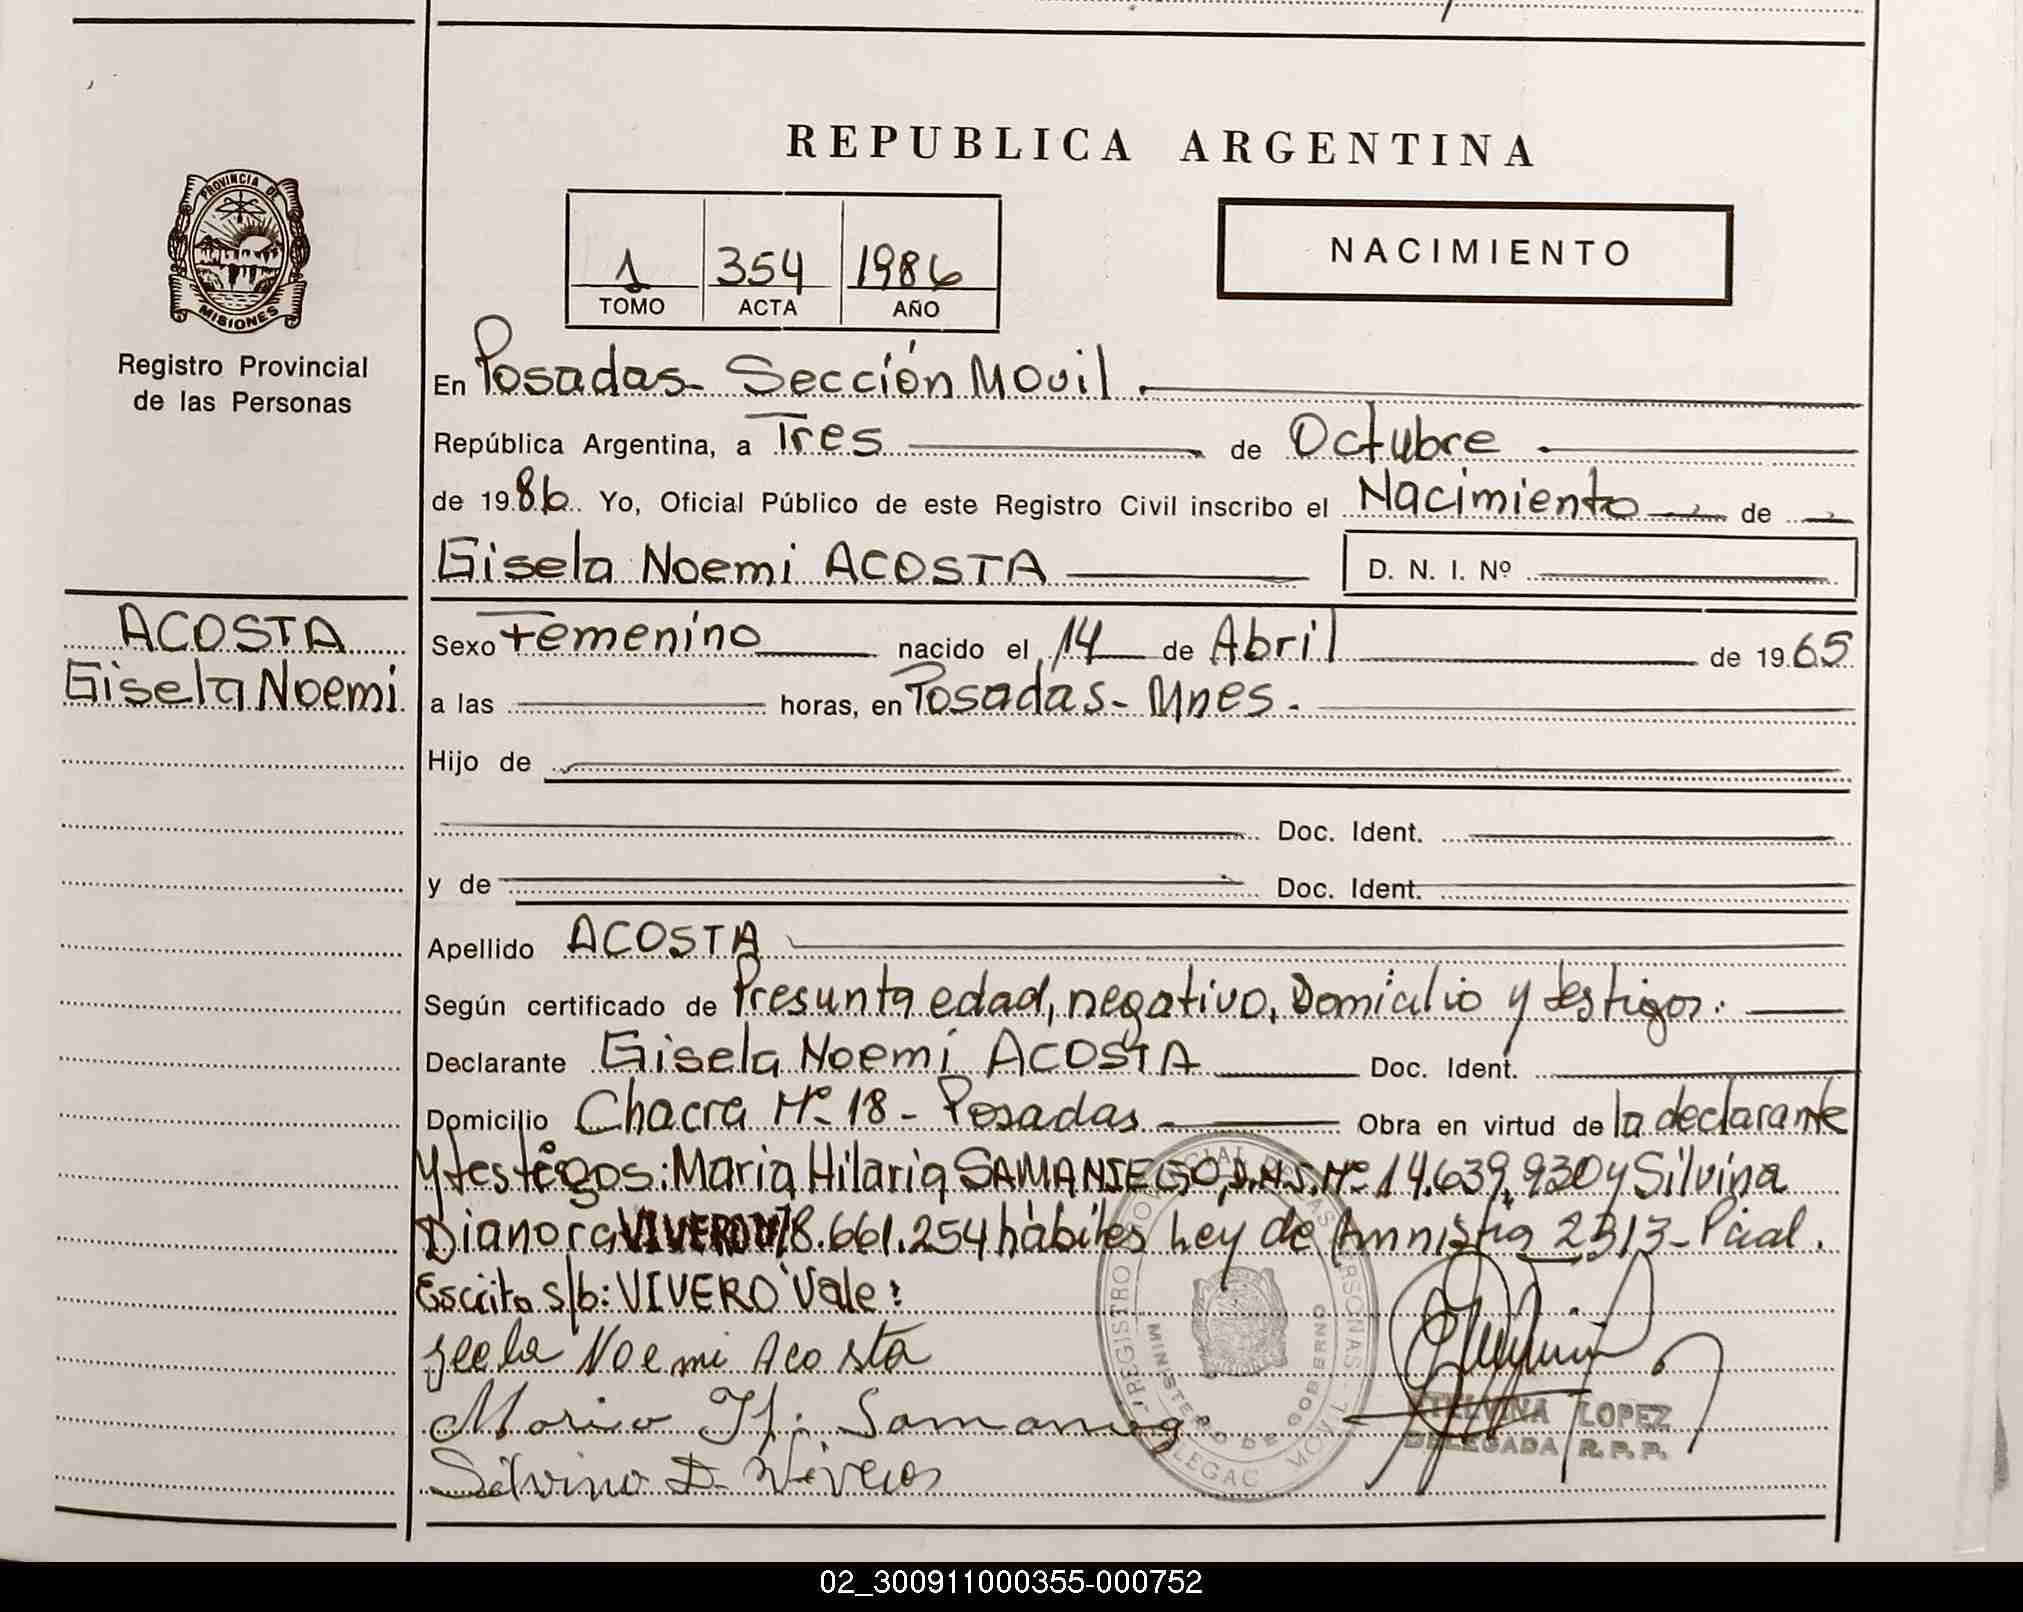 REPUBLICA ARGENTINA
PROVINCIA DE
MISIONES
Registro Provincial
de las Personas
1 354 1986
TOMO ACTA AÑO
NACIMIENTO
En Posadas - Sección Movil.
República Argentina, a Tres de Octubre
de 1986. Yo, Oficial Público de este Registro Civil inscribo el Nacimiento de
Gisela Noemi ACOSTA D. N. I. Nº
ACOSTA
Gisela Noemi
Sexo Femenino nacido el 14 de Abril de 1965
a las horas, en Posadas - Mnes.
Hijo de
Doc. Ident.
y de Doc. Ident.
Apellido ACOSTA
Según certificado de Presunta edad, negativo, Domicilio y testigos:
Declarante Gisela Noemi ACOSTA Doc. Ident.
Domicilio Chacra Nº 18 - Posadas Obra en virtud de la declarante
y testigos: Maria Hilaria SAMANIEGO, D.N.I. Nº 14.639.930 y Silvina
Dianora VIVERO 18.661.254 hábiles Ley de Amnistia 2313 - Pcial.
Escrito s/b: VIVERO Vale:
Noemi Acosta
Maria H. Samaniego
Silvina D. Viveros
REGISTRO PROVINCIAL DE LAS PERSONAS
MINISTERIO DE GOBIERNO
LOPEZ
DELEGADA R.P.P.
02_300911000355-000752